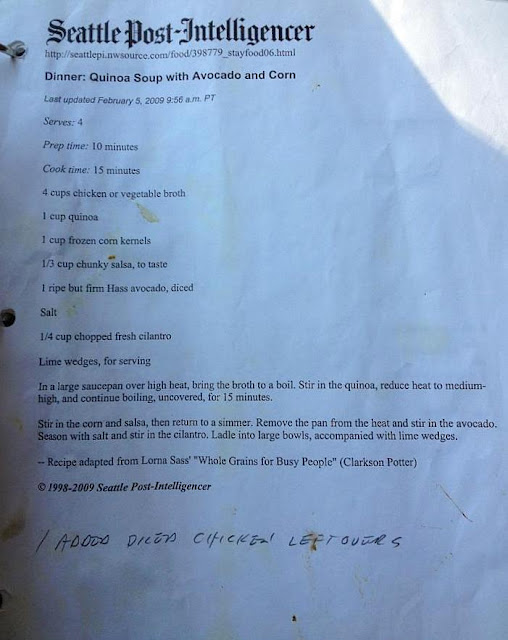 Seattle Post-Intelligencer
http://seattlepi.nwsource.com/food/398779_stayfood06.html
Dinner: Quinoa Soup with Avocado and Corn
Last updated February 5, 2009 9:56 a.m. PT
Serves: 4
Prep time: 10 minutes
Cook time: 15 minutes
4 cups chicken or vegetable broth
1 cup quinoa
1 cup frozen corn kernels
1/3 cup chunky salsa, to taste
1 ripe but firm Hass avocado, diced
Salt
1/4 cup chopped fresh cilantro
Lime wedges, for serving
In a large saucepan over high heat, bring the broth to a boil. Stir in the quinoa, reduce heat to medium-
high, and continue boiling, uncovered, for 15 minutes.
Stir in the corn and salsa, then return to a simmer. Remove the pan from the heat and stir in the avocado.
Season with salt and stir in the cilantro. Ladle into large bowls, accompanied with lime wedges.
-- Recipe adapted from Lorna Sass' "Whole Grains for Busy People" (Clarkson Potter)
© 1998-2009 Seattle Post-Intelligencer
I ADDED DICED CHICKEN LEFTOVERS